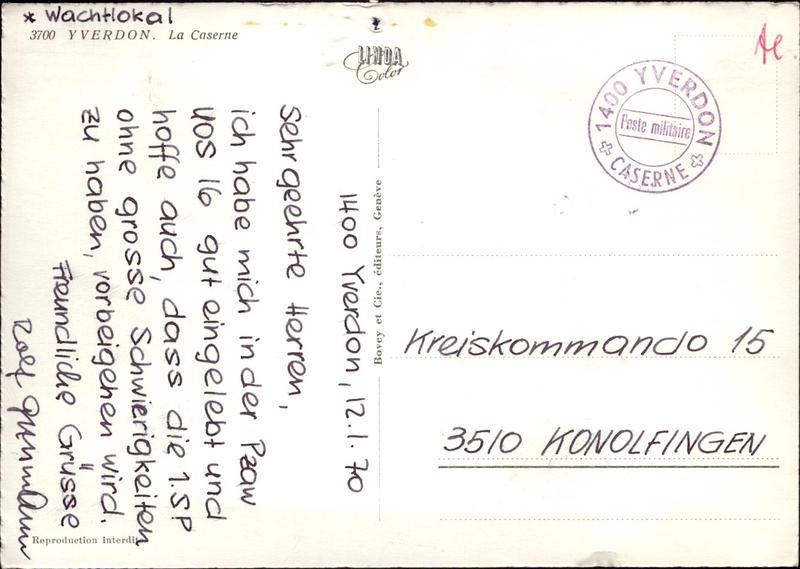 * Wachtlokal
3700 YVERDON. La Caserne
LINDA
Color
1400 Yverdon, 12.1.70
Sehr geehrte Herren,
ich habe mich in der Pzaw
UOS 16 gut eingelebt und
hoffe auch, dass die 1.SP
ohne grosse Schwierigkeiten
zu haben, vorbeigehen wird.
Freundliche Grüsse
Rolf
Reproduction interdite
Bovey et Cie., éditeurs, Genève
1400 YVERDON
Poste militaire
CASERNE
Kreiskommando 15
3510 KONOLFINGEN